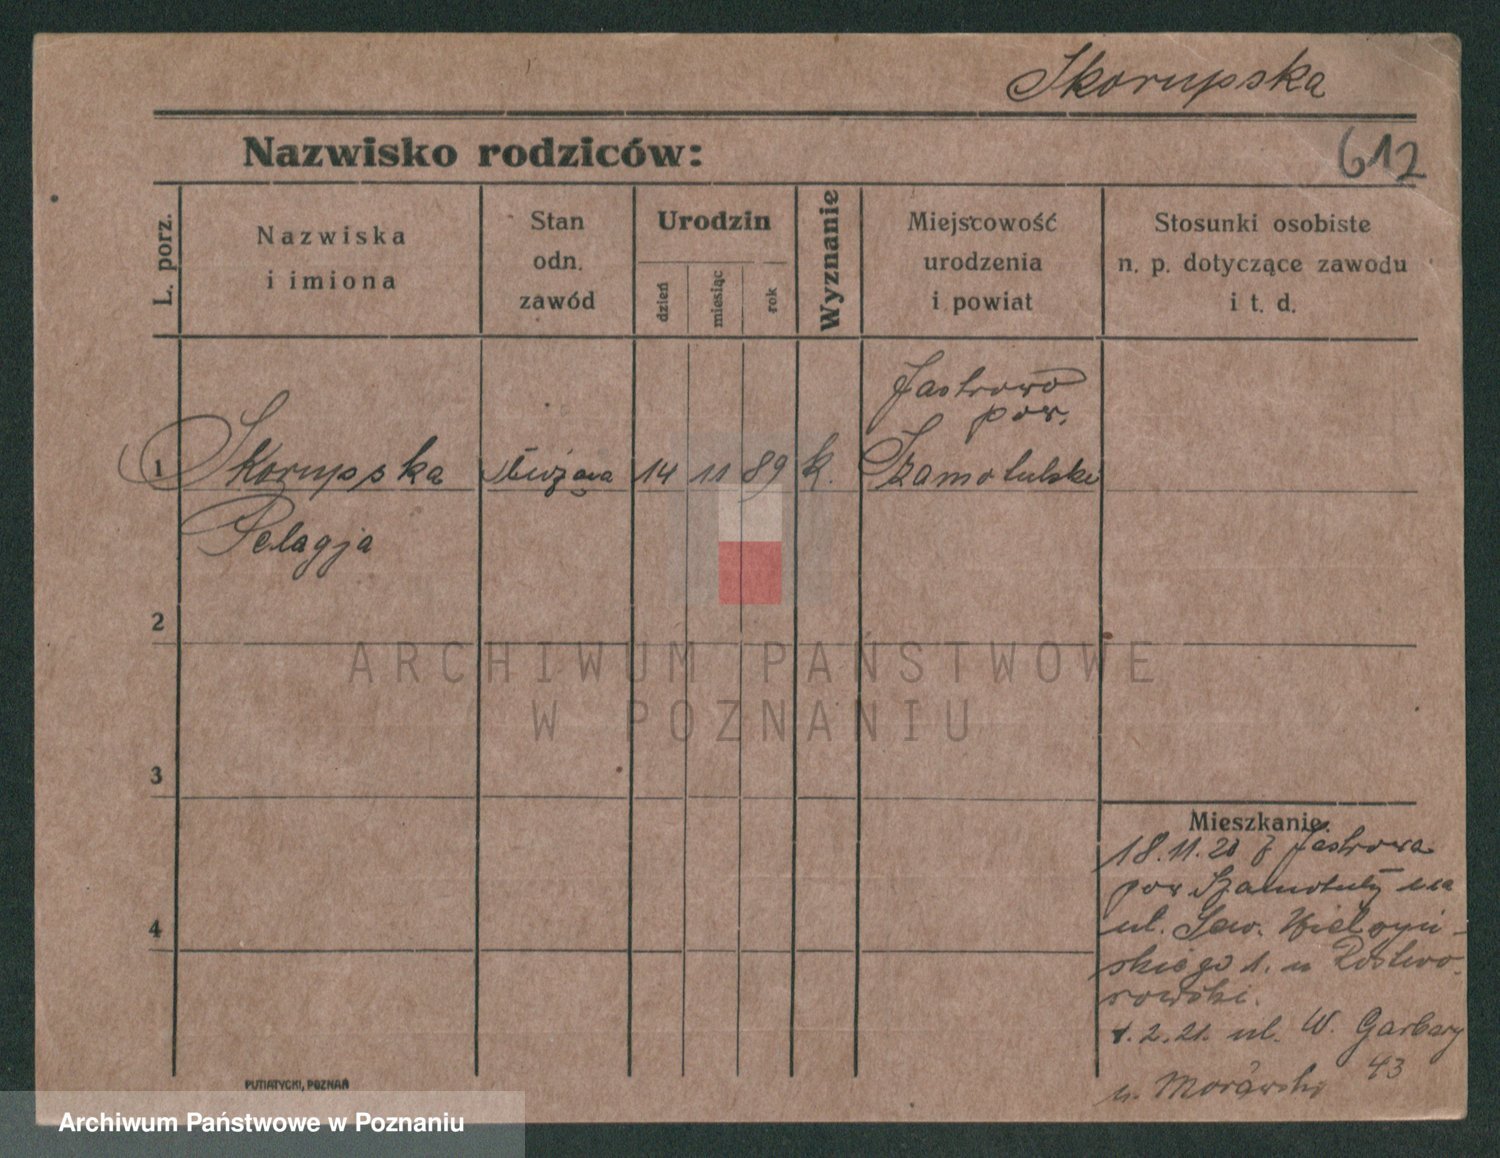 Skorupska
612
Nazwisko rodziców:
L. porz.
Nazwiska
i imiona
Stan
odn.
zawód
Urodzin
dzień
miesiąc
rok
Wyznanie
Miejscowość
urodzenia
i powiat
Stosunki osobiste
n. p. dotyczące zawodu
i t. d.
Jastrowo
pow.
1 Skorupska służąca 14 11 89 k. Szamotulski
Pelagja
2
ARCHIWUM PAŃSTWOWE
W POZNANIU
3
4
Mieszkanie.
18.11.20 z Jastrowa
pow Szamotuły na
ul. Sew. Mielżyń-
skiego 1. u
1.2.21. ul. W. Garbary
43
u. Morawski
PUTIATYCKI, POZNAŃ
Archiwum Państwowe w Poznaniu